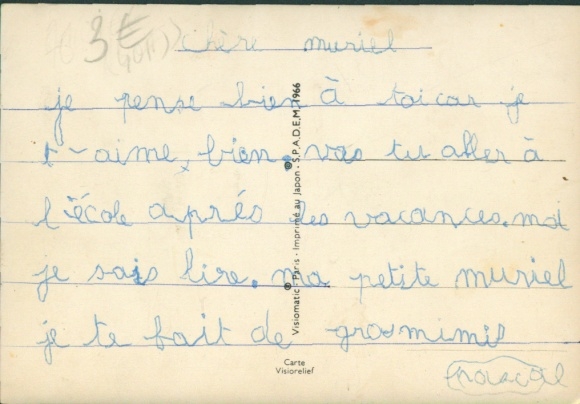 3€
Chère muriel
je pense bien à toi car je
t-aime, bien. vas tu aller à
l'école après les vacances. moi
je sais lire. ma petite muriel
je te fait de gros mimis
pascal
Visiomatic - Paris - Imprimé au Japon - S.P.A.D.E.M. 1966
Carte
Visiorelief